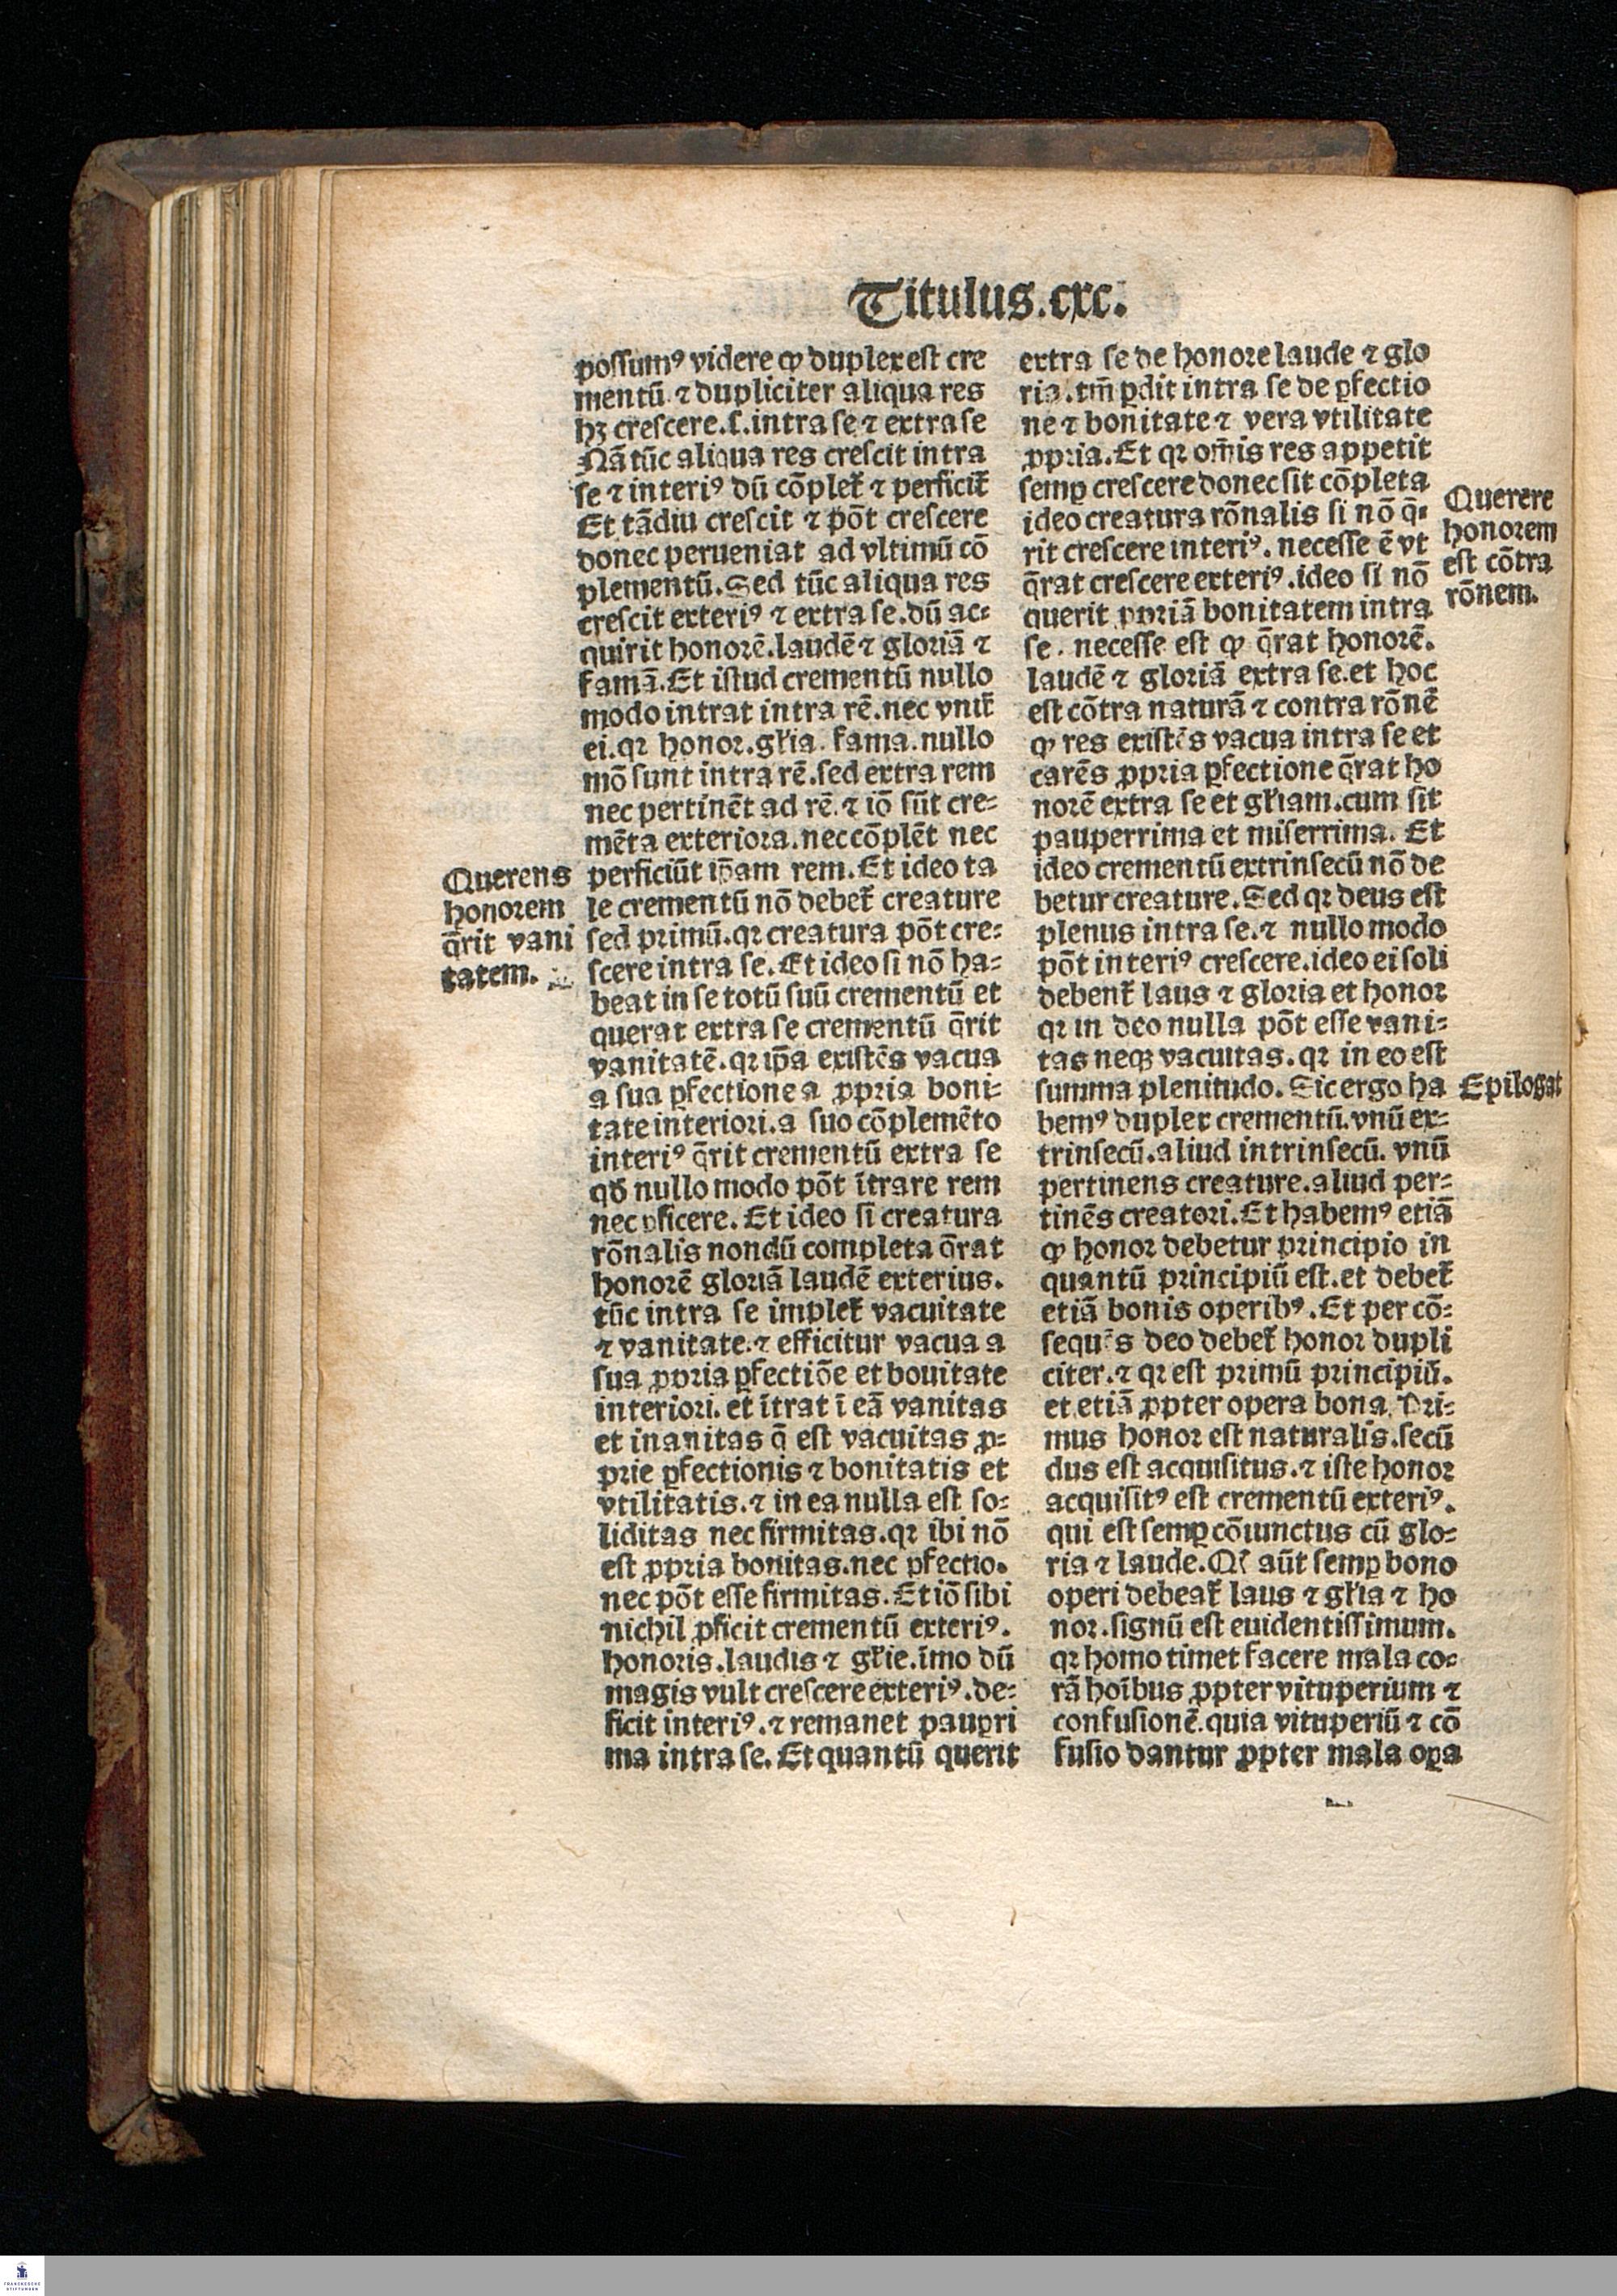 Titulus.cxc.
possumꝰ videre ꝙ duplex est cre
mentū ⁊ dupliciter aliqua res
hꝫ crescere.s.intra se ⁊ extra se
Nā tūc aliqua res crescit intra
se ⁊ interiꝰ dū cōplet᷑ ⁊ perficit᷑
Et tādiu crescit ⁊ pōt crescere
donec perueniat ad vltimū cō
plementū. Sed tūc aliqua res
crescit exteriꝰ ⁊ extra se.dū ac⸗
quirit honorē.laudē ⁊ gloriā ⁊
famā. Et istud crementū nullo
modo intrat intra rē.nec vnit᷑
ei.qꝛ honor.gl̄ia.fama.nullo
mō sunt intra rē.sed extra rem
nec pertinēt ad rē.⁊ iō sūt cre⸗
mēta exteriora.nec cōplēt nec
perficiūt ip̄am rem. Et ideo ta
le crementū nō debet᷑ creature
sed primū.qꝛ creatura pōt cre⸗
scere intra se. Et ideo si nō ha⸗
beat in se totū suū crementū et
querat extra se crementū q̄rit
vanitatē.qꝛ ip̄a existēs vacua
a sua ꝑfectione a ꝓpria boni⸗
tate interiori.a suo cōplemēto
interiꝰ q̄rit crementū extra se
qđ nullo modo pōt ītrare rem
nec ꝑficere. Et ideo si creatura
rōnalis nondū completa q̄rat
honorē gloriā laudē exterius.
tūc intra se implet᷑ vacuitate
⁊ vanitate.⁊ efficitur vacua a
sua ꝓpria ꝑfectiōe et bouitate
interiori.et ītrat ī eā vanitas
et inanitas q̄ est vacuitas ꝓ⸗
prie ꝑfectionis ⁊ bonitatis et
vtilitatis.⁊ in ea nulla est so⸗
liditas nec firmitas.qꝛ ibi nō
est ꝓpria bonitas.nec ꝑfectio.
nec pōt esse firmitas. Et iō sibi
nichil ꝓficit crementū exteriꝰ.
honoris.laudis ⁊ gl̄ie.īmo dū
magis vult crescere exteriꝰ.de⸗
ficit interiꝰ.⁊ remanet pauꝑri
ma intra se. Et quantū querit
Querens
honorem
q̄rit vani
tatem.
extra se de honore laude ⁊ glo
ria.tm̄ ꝑdit intra se de ꝑfectio
ne ⁊ bonitate ⁊ vera vtilitate
ꝓpria. Et qꝛ om̄is res appetit
semꝑ crescere donec sit cōpleta
ideo creatura rōnalis si nō q̄⸗
rit crescere interiꝰ.necesse ē vt
q̄rat crescere exteriꝰ.ideo si nō
querit ꝓpriā bonitatem intra
se.necesse est ꝙ q̄rat honorē.
laudē ⁊ gloriā extra se.et hoc
est cōtra naturā ⁊ contra rōnē
ꝙ res existēs vacua intra se et
carēs ꝓpria ꝑfectione q̄rat ho
norē extra se et gl̄iam.cum sit
pauperrima et miserrima. Et
ideo crementū extrinsecū nō de
betur creature. Sed qꝛ deus est
plenus intra se.⁊ nullo modo
pōt interiꝰ crescere.ideo ei soli
debent᷑ laus ⁊ gloria et honor
qꝛ in deo nulla pōt esse vani⸗
tas neqꝫ vacuitas.qꝛ in eo est
summa plenitudo. Sic ergo ha
bemꝰ duplex crementū.vnū ex⸗
trinsecū.aliud intrinsecū.vnū
pertinens creature.aliud per⸗
tinēs creatori. Et habemꝰ etiā
ꝙ honor debetur principio in
quantū principiū est.et debet᷑
etiā bonis operibꝰ. Et per cō⸗
sequēs deo debet᷑ honor dupli
citer.⁊ qꝛ est primū principiū.
et etiā ꝓpter opera bona. Pri⸗
mus honor est naturalis.secū
dus est acquisitus.⁊ iste honor
acquisitꝰ est crementū exteriꝰ.
qui est semꝑ cōiunctus cū glo⸗
ria ⁊ laude. Qꝛ aūt semꝑ bono
operi debeat᷑ laus ⁊ gl̄ia ⁊ ho
nor.signū est euidentissimum.
qꝛ homo timet facere mala co⸗
rā hoībus ꝓpter vituperium ⁊
confusionē.quia vituperiū ⁊ cō
fusio dantur ꝓpter mala oꝑa
Querere
honorem
est cōtra
rōnem.
Epilogat
FRANCKESCHE
STIFTUNGEN